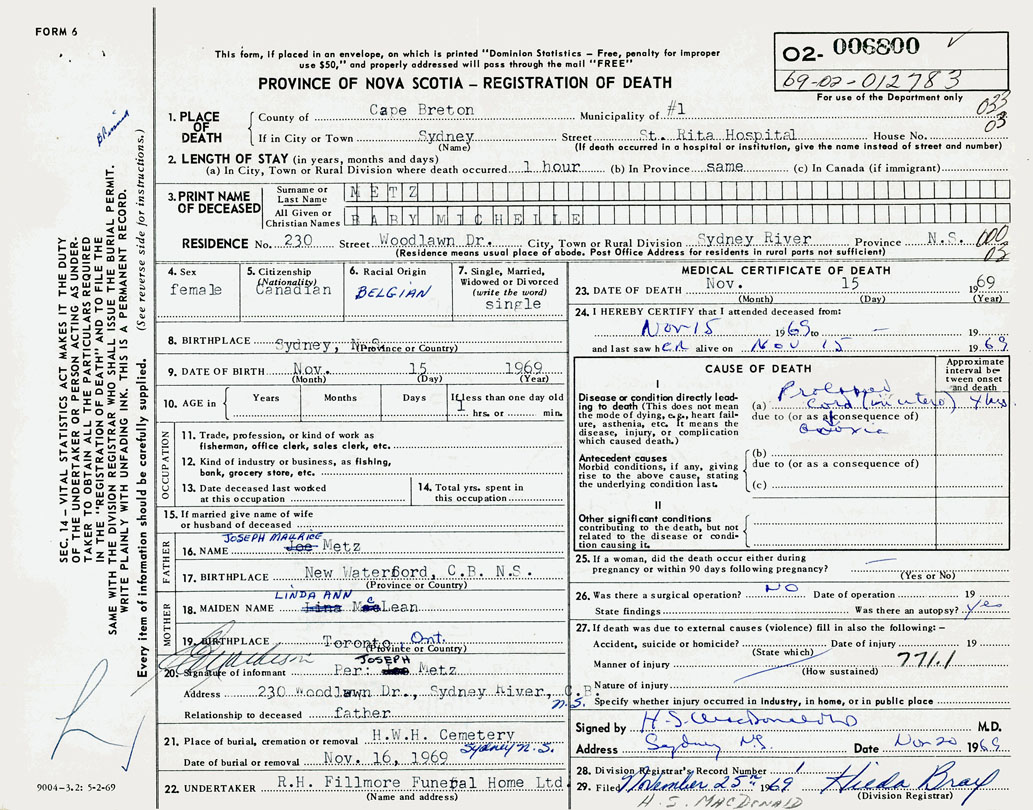 FORM 6
This form, if placed in an envelope, on which is printed "Dominion Statistics — Free, penalty for improper
use $50," and properly addressed will pass through the mail "FREE"
PROVINCE OF NOVA SCOTIA – REGISTRATION OF DEATH
02- 006800
69-02-012783
For use of the Department only
033
03
1. PLACE OF DEATH
County of Cape Breton Municipality of #1
If in City or Town Sydney Street St. Rita Hospital House No.
(Name) (If death occurred in a hospital or institution, give the name instead of street and number)
2. LENGTH OF STAY (in years, months and days)
(a) In City, Town or Rural Division where death occurred 1 hour (b) In Province same (c) In Canada (if immigrant)
3. PRINT NAME OF DECEASED
Surname or Last Name METZ
All Given or Christian Names BABY MICHELLE
RESIDENCE No. 230 Street Woodlawn Dr. City, Town or Rural Division Sydney River Province N.S.
000
03
(Residence means usual place of abode. Post Office Address for residents in rural parts not sufficient)
4. Sex
female
5. Citizenship (Nationality)
Canadian
6. Racial Origin
BELGIAN
7. Single, Married, Widowed or Divorced (write the word)
single
8. BIRTHPLACE Sydney, N.S.
(Province or Country)
9. DATE OF BIRTH Nov. 15 1969
(Month) (Day) (Year)
10. AGE in Years Months Days If less than one day old
1 hrs. or min.
OCCUPATION
11. Trade, profession, or kind of work as
fisherman, office clerk, sales clerk, etc.
12. Kind of industry or business, as fishing,
bank, grocery store, etc.
13. Date deceased last worked
at this occupation
14. Total yrs. spent in
this occupation
15. If married give name of wife
or husband of deceased
FATHER
JOSEPH MAURICE
16. NAME Joe Metz
17. BIRTHPLACE New Waterford, C.B. N.S.
(Province or Country)
MOTHER
LINDA ANN
18. MAIDEN NAME Lina MacLean
19. BIRTHPLACE Toronto, Ont.
(Province or Country)
JOSEPH
20. Signature of informant Per: Metz
Address 230 Woodlawn Dr., Sydney River, C.B.
N.S.
Relationship to deceased father
21. Place of burial, cremation or removal H.W.H. Cemetery
Sydney N.S.
Date of burial or removal Nov. 16, 1969
22. UNDERTAKER R.H. Fillmore Funeral Home Ltd
(Name and address)
MEDICAL CERTIFICATE OF DEATH
23. DATE OF DEATH Nov. 15 1969
(Month) (Day) (Year)
24. I HEREBY CERTIFY that I attended deceased from:
Nov 15 1969 to – 19
and last saw her alive on Nov 15 1969
CAUSE OF DEATH
Approximate interval between onset and death
I
Disease or condition directly leading to death (This does not mean the mode of dying, e.g., heart failure, asthenia, etc. It means the disease, injury, or complication which caused death.)
(a) Prolapsed Cord (in utero)
due to (or as a consequence of)
anoxia
Antecedent causes
Morbid conditions, if any, giving rise to the above cause, stating the underlying condition last.
(b)
due to (or as a consequence of)
(c)
II
Other significant conditions
contributing to the death, but not related to the disease or condition causing it.
25. If a woman, did the death occur either during
pregnancy or within 90 days following pregnancy? —
(Yes or No)
26. Was there a surgical operation? NO Date of operation 19
State findings Was there an autopsy? Yes
27. If death was due to external causes (violence) fill in also the following:—
Accident, suicide or homicide? Date of injury 19
(State which)
Manner of injury 771.1
(How sustained)
Nature of injury
Specify whether injury occurred in Industry, in home, or in public place
Signed by H.S. MacDonald M.D.
Address Sydney N.S. Date Nov 20 1969
28. Division Registrar's Record Number
29. Filed November 25th 1969 Hilda Bray
(Division Registrar)
H. S. MACDONALD
SEC. 14 – VITAL STATISTICS ACT MAKES IT THE DUTY
OF THE UNDERTAKER OR PERSON ACTING AS UNDER-
TAKER TO OBTAIN ALL THE PARTICULARS REQUIRED
IN THE "REGISTRATION OF DEATH" AND TO FILE THE
SAME WITH THE DIVISION REGISTRAR WHO SHALL ISSUE THE BURIAL PERMIT.
WRITE PLAINLY WITH UNFADING INK. THIS IS A PERMANENT RECORD.
Every item of information should be carefully supplied. (See reverse side for instructions.)
9004–3.2: 5-2-69